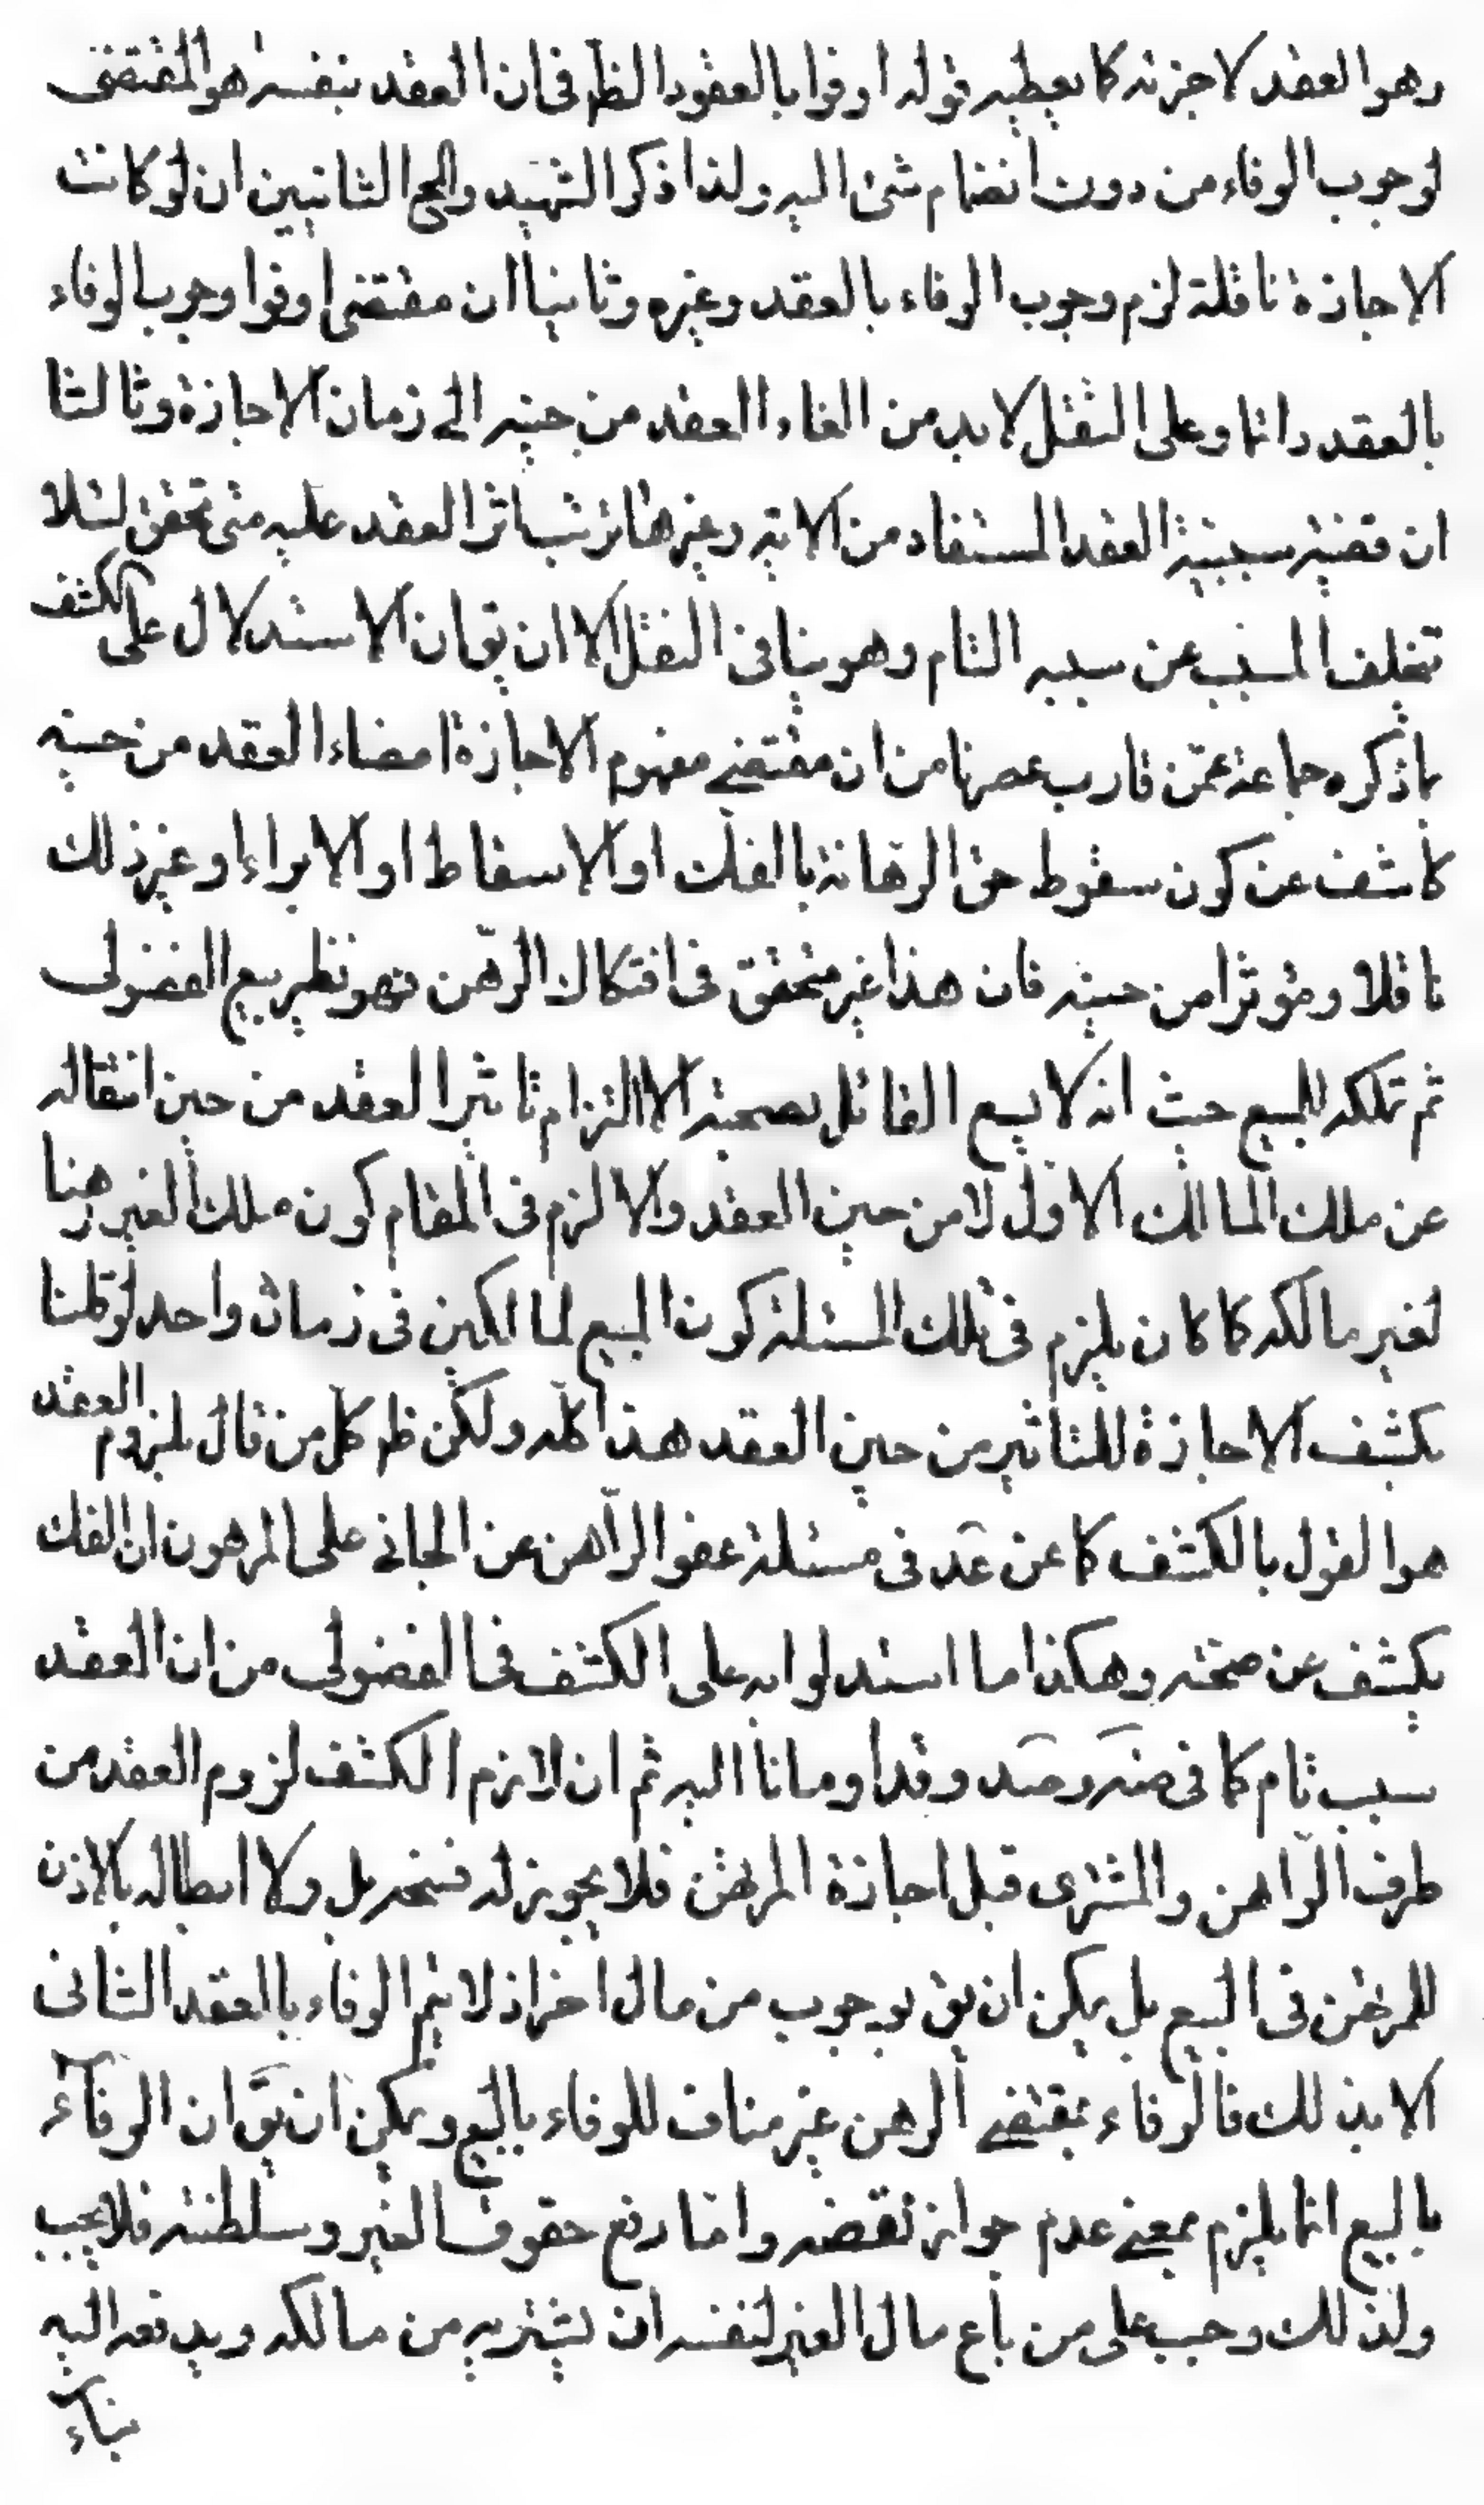 وهو العقد لا جزئه كما يعطيه قوله اوفوا بالعقود الظ فى ان العقد بنفسه هو المقتضى
لوجوب الوفاء من دون انضمام شئ اليه ولذا ذكر الشهيد والمح الثانيين ان لو كانت
الاجازة ناقلة لزم وجوب الوفاء بالعقد وغيره وثانيا ان مقتضى اوفوا وجوب الوفاء
بالعقد دائما وعلى النقل لابد من الغاء العقد من حينه الى زمان الاجازة وثالثا
ان قضية سببية العقد المستفاد من الاية وغيرها ترتب اثر العقد عليه متى تحقق لئلا
تخلف المسبب عن سببه التام وهو ينافى النقل الا ان يق ان الاستدلال على الكشف
بما ذكره جماعة عمّن قارب عصرنا من ان مقتضى مفهوم الاجازة امضاء العقد من حينه
كاشف عن كون سقوط حق الرهانة بالفك او الاسقاط او الابراء او غير ذلك
ناقلا ومؤثرا من حينه فان هذا غير متحقق فى افتكاك الرّهن فهو نظير بيع الفضولى
ثم تملكه للمبيع حيث انه لا يسع القائل بصحته الا التزام تاثير العقد من حين انتقاله
عن ملك المالك الاول لا من حين العقد والا لزم فى المقام كون ملك الغير رهنا
لغير مالكه كما كان يلزم فى تلك المسئلة كون المبيع لمالكين فى زمان واحد لو قلنا
بكشف الاجازة للتاثير من حين العقد هذا كلّه ولكن ظ كل من قال بلزوم العقد
هو القول بالكشف كما عن عد فى مسئلة عفو الراهن عن الجانى على المرهون ان الفك
يكشف عن صحته وهكذا ما استدلوا به على الكشف فى الفضولى من ان العقد
سبب تام كما فى ضه وصد وقد اومانا اليه ثم ان لازم الكشف لزوم العقد من
طرف الراهن والمشترى قبل اجازة المرتهن فلا يجوز له فسخه بل ولا ابطاله بالاذن
للمرتهن فى البيع بل يمكن ان يق بوجوب من مال اخر اذ لا يتم الوفاء بالعقد الثانى
الا بذلك فالوفاء بمقتضى الرهن غير مناف للوفاء بالبيع ويمكن ان يق ان الوفاء
بالبيع انما يلزم بمعنى عدم جواز نقضه واما رفع حقوق الغير وسلطنته فلا يجب
ولذلك وجب على من باع مال الغير لنفسه ان يشتريه من مالكه ويدفعه اليه
بناء